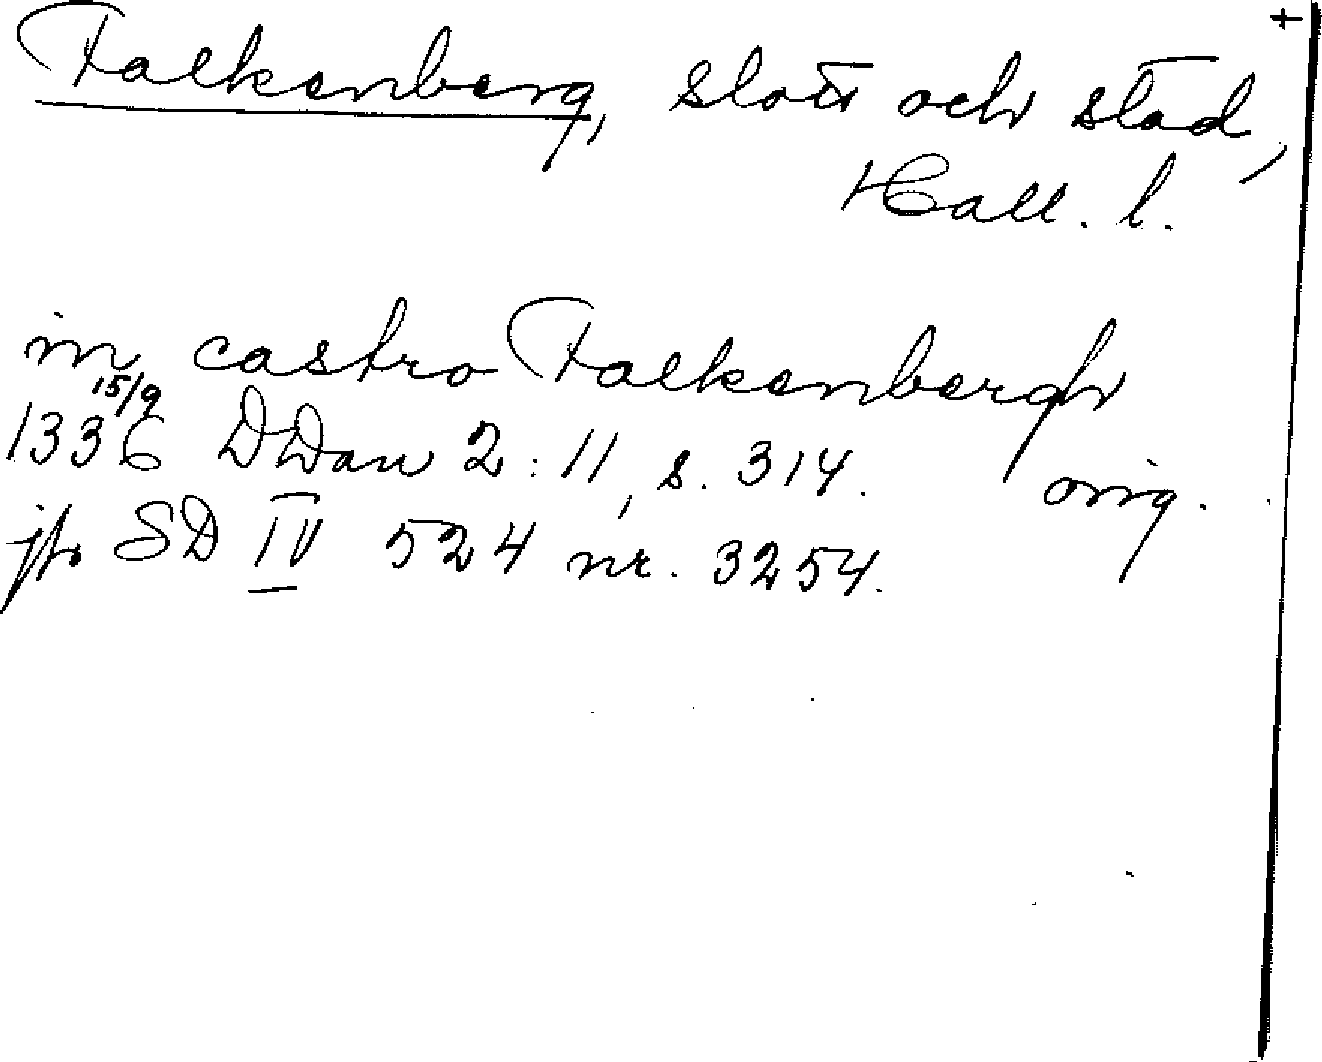 Falkenberg, slott och stad,
Hall. l.
in castro Falkenbergh
15/9
1336 DDan 2:11, s. 314. orig.
jfr SD IV 524 nr. 3254.